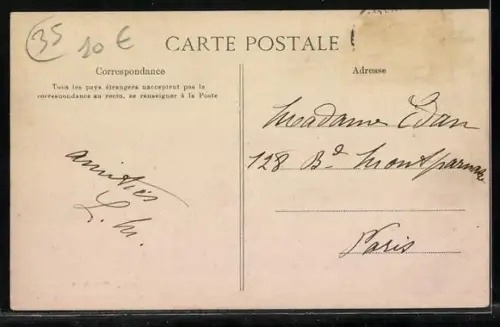 35
10 €
CARTE POSTALE
Correspondance
Tous les pays étrangers n'acceptent pas la
correspondance au recto, se renseigner à la Poste
Adresse
Madame Edan
128 Bd Montparnasse
Paris
amitiés
L. M.